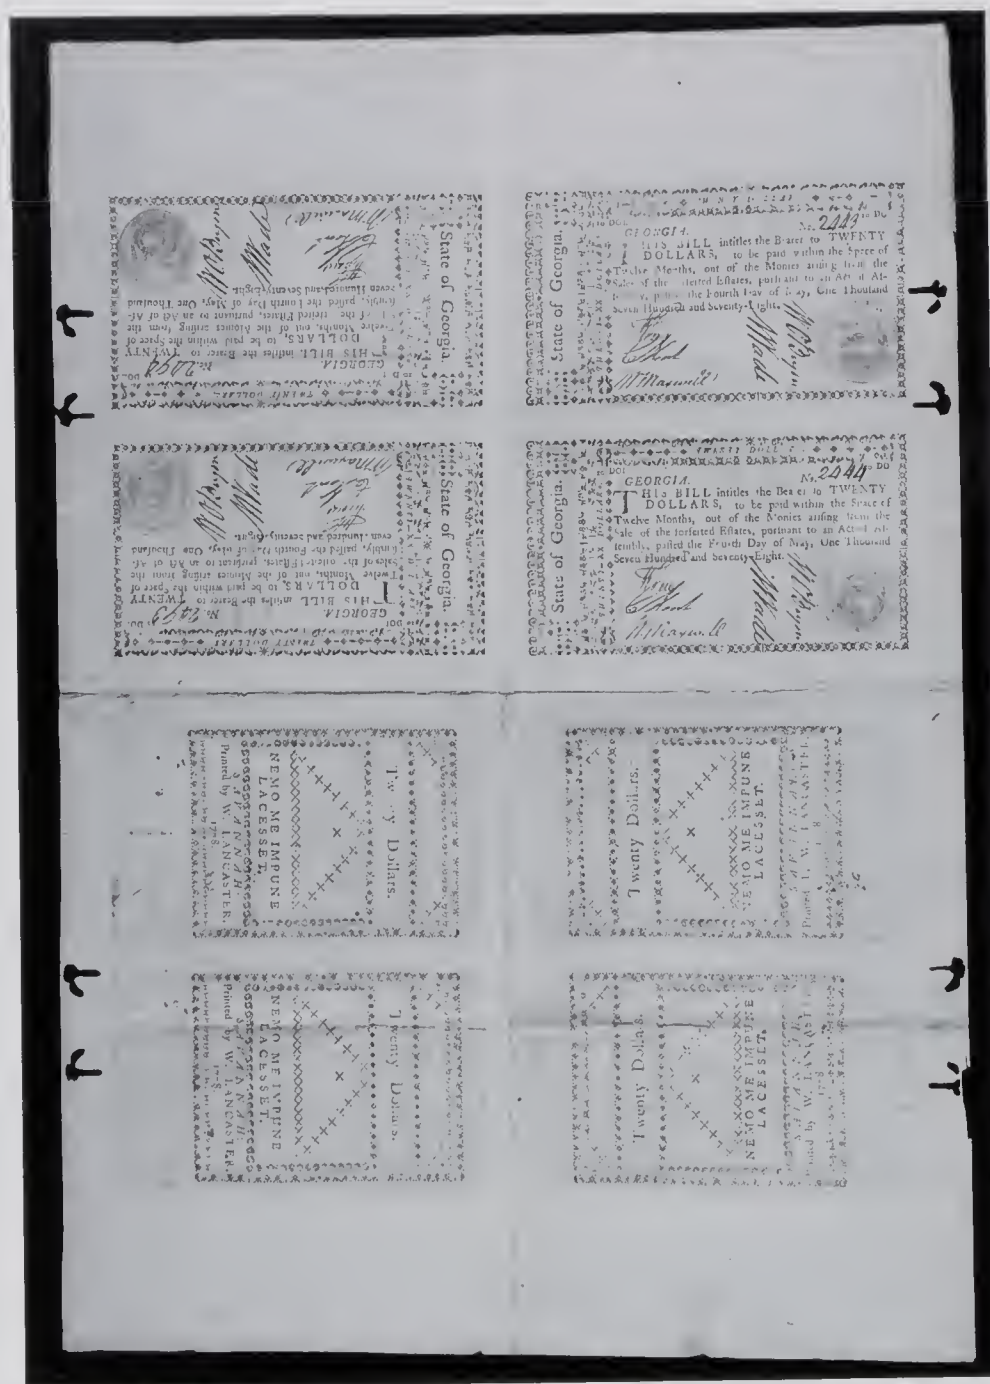 State of Georgia.
TWENTY DOLLARS
No. 2494
GEORGIA.
THIS BILL intitles the Bearer to TWENTY
DOLLARS, to be paid within the Space of
Twelve Months, out of the Monies arising from the
of the Estates, pursuant to an Act of As-
sembly, passed the Fourth Day of May, One Thousand
Seven Hundred and Seventy-Eight.
Wade
State of Georgia.
No. 2442
GEORGIA.
THIS BILL intitles the Bearer to TWENTY
DOLLARS, to be paid within the Space of
Twelve Months, out of the Monies arising from the
Sale of the forfeited Estates, pursuant to an Act of As-
the Fourth Day of May, One Thousand
Seven Hundred and Seventy-Eight.
Wm Maxwell
Wade
State of Georgia.
TWENTY DOLLARS
No. 2493
GEORGIA.
THIS BILL intitles the Bearer to TWENTY
DOLLARS, to be paid within the Space of
Twelve Months, out of the Monies arising from the
Sale of the forfeited Estates, pursuant to an Act of As-
sembly, passed the Fourth Day of May, One Thousand
Seven Hundred and Seventy-Eight.
Maxwell
Wade
State of Georgia.
No. 2444
GEORGIA.
THIS BILL intitles the Bearer to TWENTY
DOLLARS, to be paid within the Space of
Twelve Months, out of the Monies arising from the
Sale of the forfeited Estates, pursuant to an Act of As-
sembly, passed the Fourth Day of May, One Thousand
Seven Hundred and Seventy-Eight.
Maxwell
Wade
Twenty Dollars.
NEMO ME IMPUNE
LACESSET.
SAVANNAH:
Printed by W. LANCASTER.
Twenty Dollars.
NEMO ME IMPUNE
LACESSET.
Printed by W. LANCASTER.
Twenty Dollars.
NEMO ME IMPUNE
LACESSET.
SAVANNAH:
Printed by W. LANCASTER.
Twenty Dollars.
NEMO ME IMPUNE
LACESSET.
Printed by W. LANCASTER.